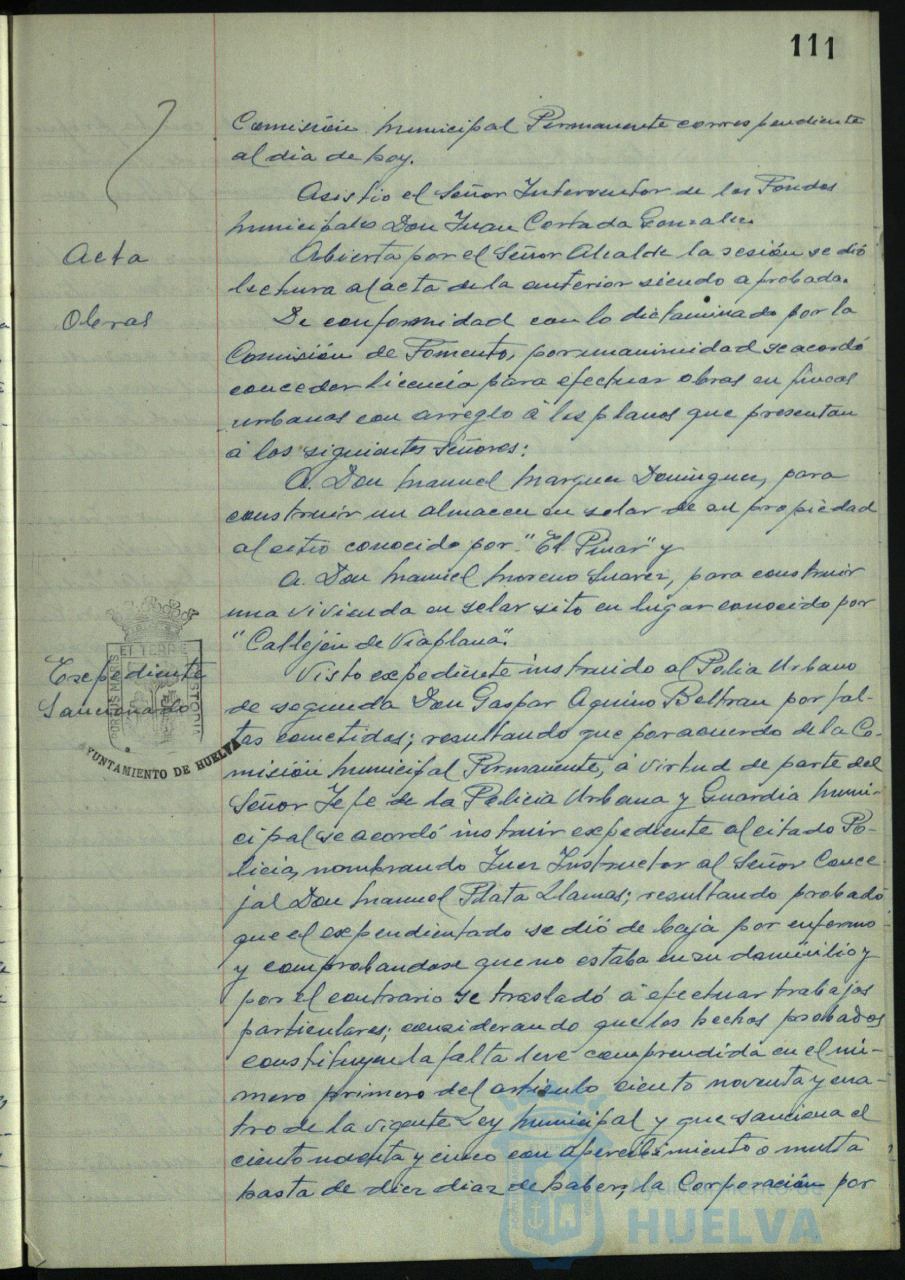 111
Comisión Municipal Permanente correspondiente
al dia de hoy.
Asistio el Señor Interventor de los Fondos
municipales Don Juan Cortada Gonzalez.
Acta
Abierta por el Señor Alcalde la sesión se dió
lectura al acta de la anterior siendo aprobada.
Obras
De conformidad con lo dictaminado por la
Comisión de Fomento, por unanimidad se acordó
conceder licencia para efectuar obras en fincas
urbanas con arreglo á los planos que presentan
á los siguientes Señores:
A. Don Manuel Marquez Dominguez, para
construir un almacen en solar de su propiedad
al sitio conocido por "El Pinar" y
A. Don Manuel Moreno Suarez, para construir
una vivienda en solar sito en lugar conocido por
"Callejón de Viaplana".
Expediente
Sancionado
Visto expediente instruido al Policia Urbano
de segunda Don Gaspar Aquino Beltran por fal-
tas cometidas; resultando que por acuerdo de la Co-
misión Municipal Permanente, á virtud de parte del
Señor Jefe de la Policia Urbana y Guardia Muni-
cipal se acordó instruir expediente al citado Po-
licia, nombrando Juez Instructor al Señor Conce-
jal Don Manuel Plata Llamas; resultando probado
que el expendientado se dió de baja por enfermo
y comprobandose que no estaba en su domicilio y
por el contrario se trasladó á efectuar trabajos
particulares; considerando que los hechos probados
constituyen la falta leve comprendida en el nú-
mero primero del articulo ciento noventa y cua-
tro de la vigente Ley Municipal y que sanciona el
ciento noventa y cinco con apercibimiento o multa
hasta de diez dias de haber, la Corporación por
EI TERRE
PORTUS MARIS
CUSTODIA
AYUNTAMIENTO DE HUELVA
Ayuntamiento de
HUELVA